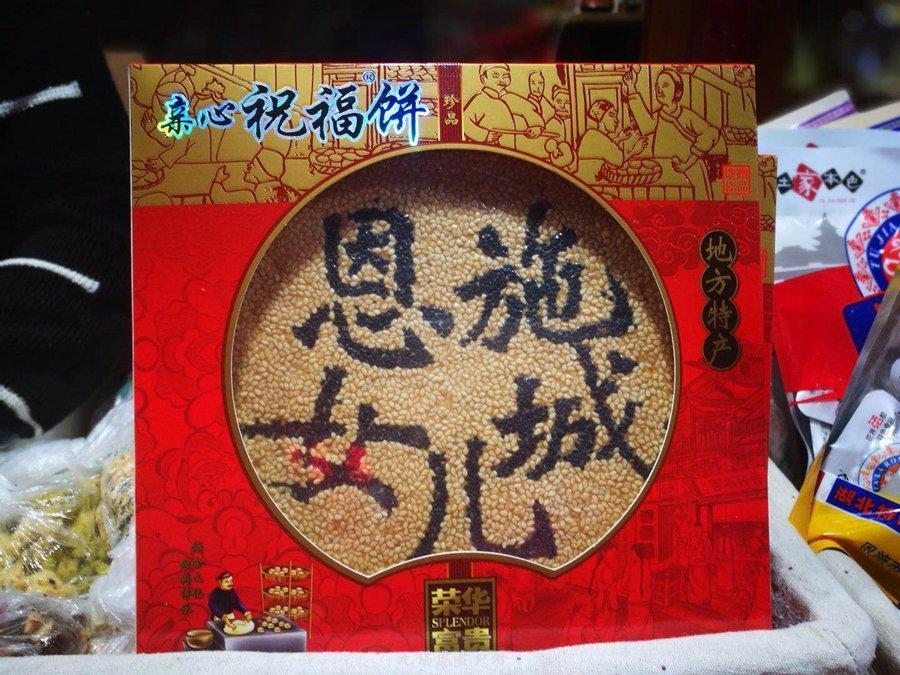 亲心祝福饼®
珍品
地方特产
恩施
女儿城
荣华
SPLENDOR
富贵
土家本色